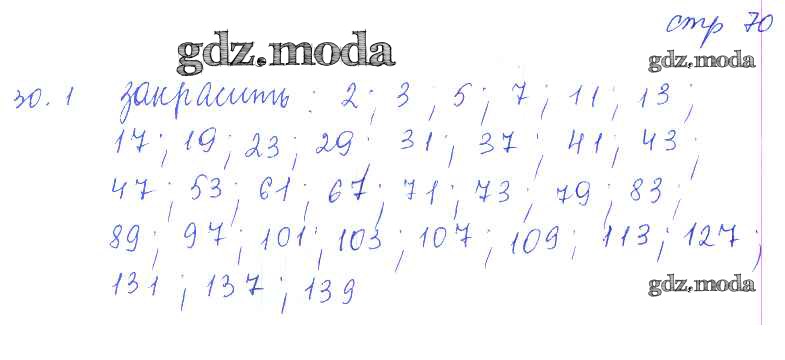 стр 70
gdz.moda
gdz.moda
30.1 закрасить: 2; 3; 5; 7; 11; 13;
17; 19; 23; 29; 31; 37; 41; 43;
47; 53; 61; 67; 71; 73; 79; 83;
89; 97; 101; 103; 107; 109; 113; 127;
131; 137; 139
gdz.moda